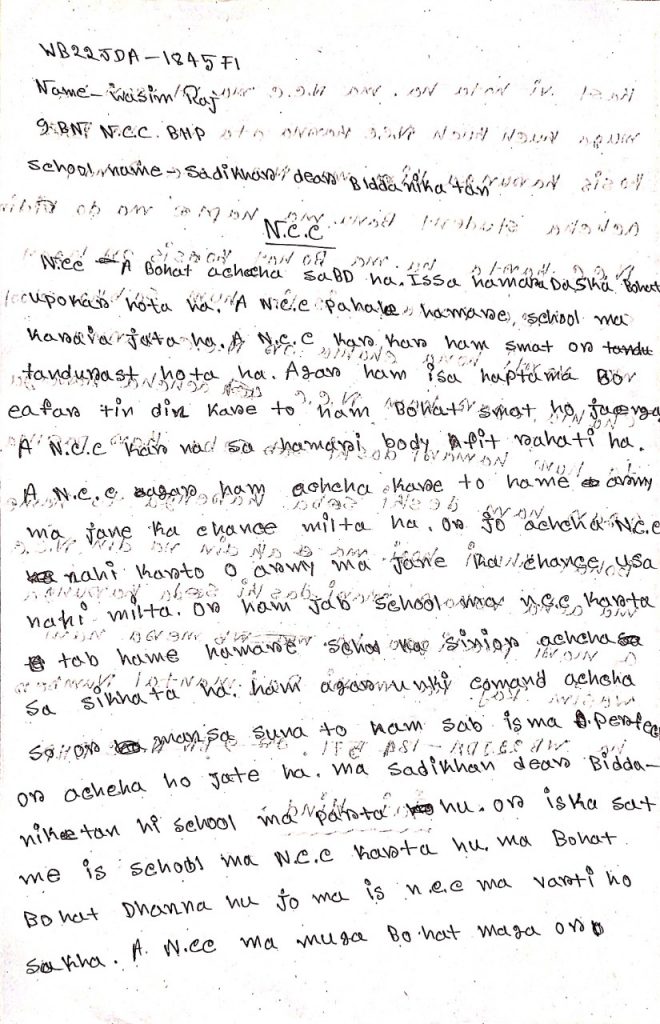 WB22JDA-184571
Name - Wasim Raj
9 BN N.C.C. BHP
School name → Sadikhan's dears Biddanikatan
N.C.C
N.CC - A Bohat achcha saBD ha. Issa hamara Daska Bohat
upokar hota ha. A N.C.C pahale hamare, school ma
karaia jata ha. A N.C.C kar kar ham smat or tandu
tandurast hota ha. Agar ham isa haptama Bo
eafar tin din kare to ham Bohat smat ho jaenga
A N.C.C kar na sa hamari body fit rahati ha.
A N.C.C agar ham achcha kare to hame army
ma jane ka chance milta ha. or jo achcha N.C.C
nahi karto o army ma jane ka chance usa
nahi milta. or ham jab school ma n.c.c karta
tab hame hamare schoo ka sinior achcha
sa sikhata ha. ham agar unki comand achcha
sa or mansa suna to ham sab isma perfec
or achcha ho jate ha. ma Sadikhan dears Bidda-
niketan hi school ma parta hu. or iska sat
me is school ma N.C.C karta hu. ma Bohat
Bohat Dhanna hu jo ma is n.c.c ma varti ho
sakha. A N.CC ma muga Bohat maga or